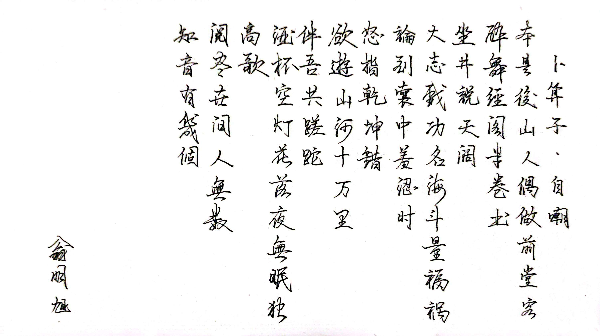 卜算子·自嘲
本是後山人偶做前堂客
醉舞經阁半卷书
坐井說天阔
大志戲功名海斗量福禍
論到囊中羞澀时
怒指乾坤錯
欲遊山河十万里
伴吾共蹉跎
酒杯空灯花落夜無眠独
高歌
阅尽世间人無数
知音有幾個
明旭